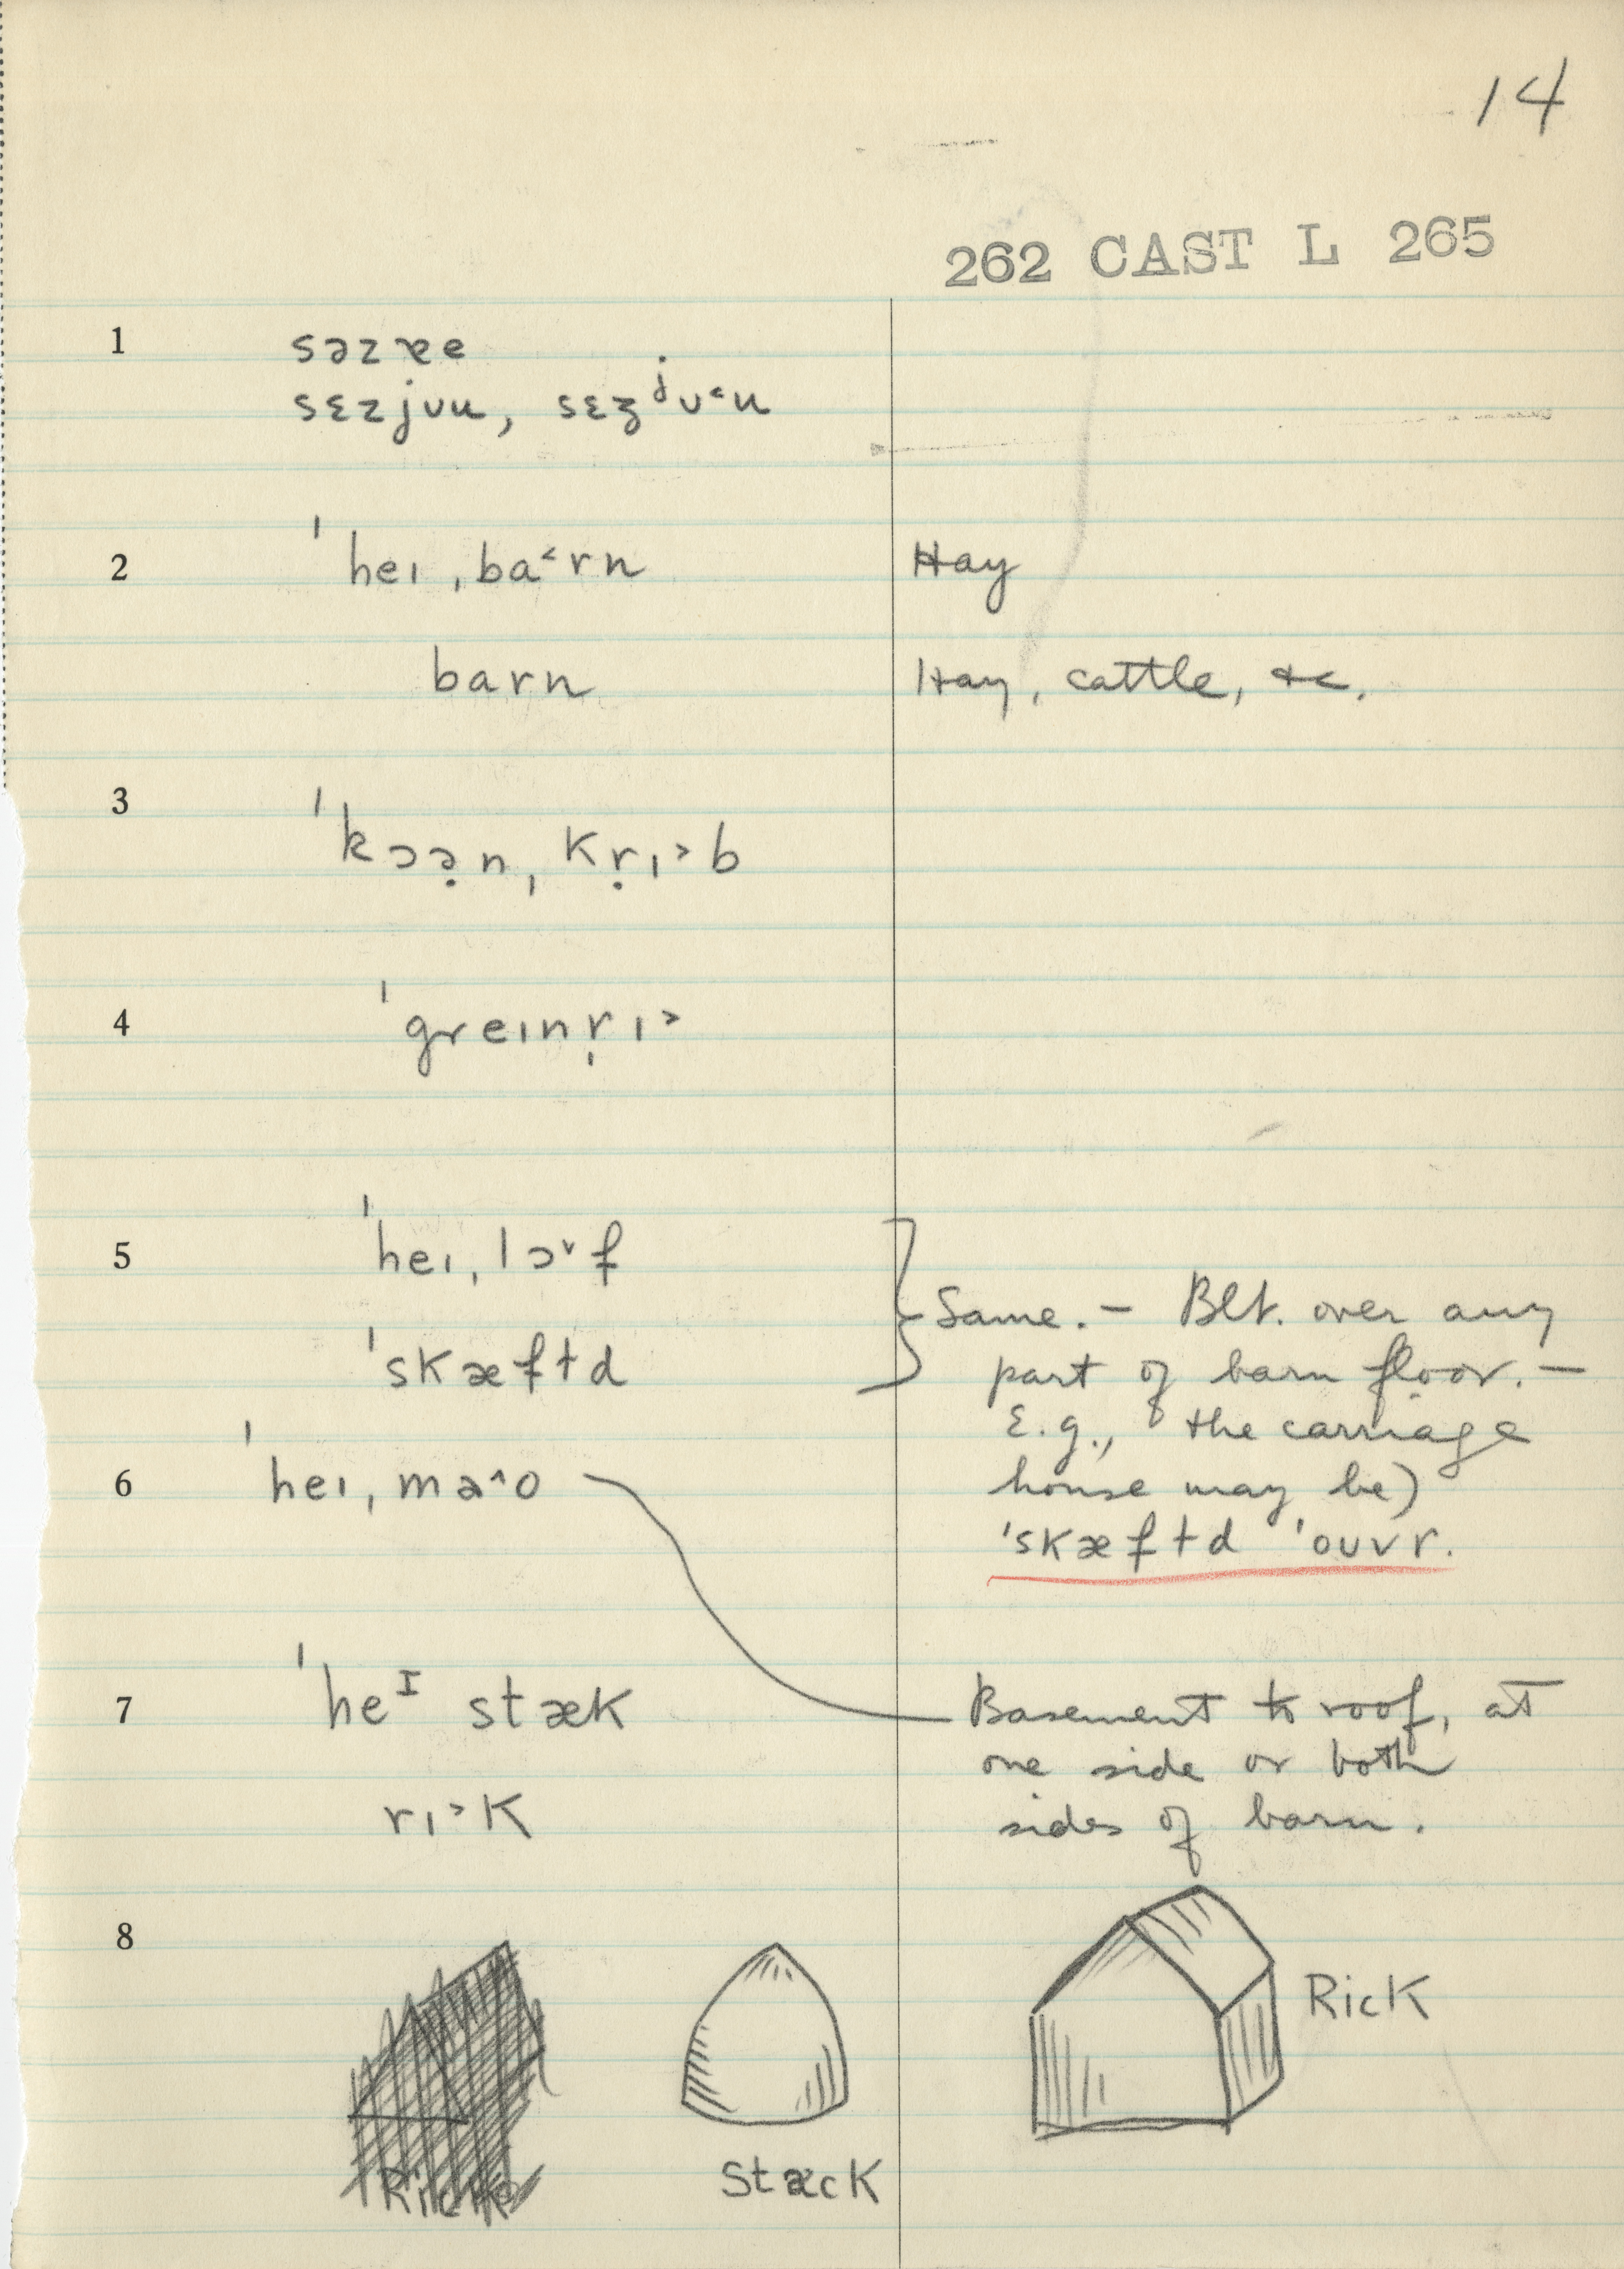 14
262 CAST L 265
1 səzæe
sɛzjuu, sɛʒʲu˂u
2 ˈheɪ ˌba˂rn Hay
barn Hay, cattle, &c.
3 ˈkɔə̣n, kṛɪ˃b
4 ˈgreɪnṛɪ˃
5 ˈheɪ ˌlɔ˅f
ˈskæfɫd
} Same. — Blt. over any
part of barn floor. —
E.g., the carriage
house may be)
ˈskæfɫd ˈouvr.
6 ˈheɪ ˌma˄o
7 ˈheᴵ stæk
rɪ˃k
Basement to roof, at
one side or both
sides of barn.
8
Rick
Stæck
Rick